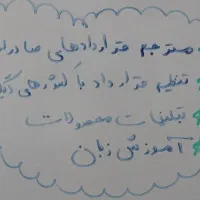 مترجم قراردادهای صادر
تنظیم قرارداد با کشورهای
تبلیغات محصولات
آموزش زبان